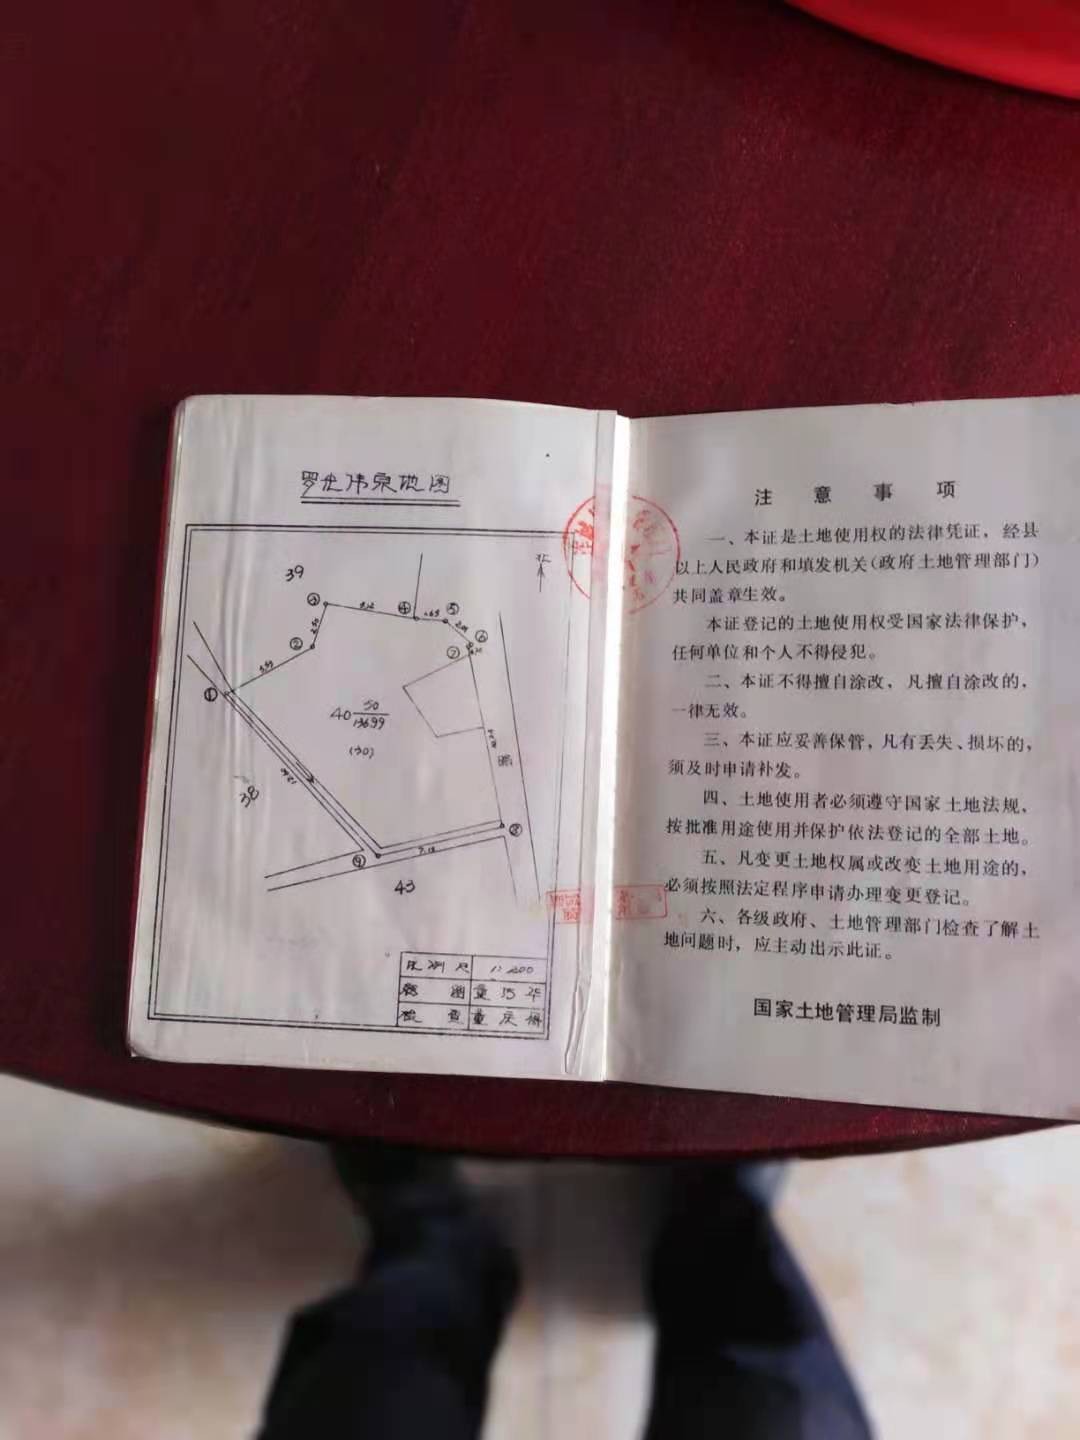 罗世伟宗地图
北
39
③
④
⑤
②
⑥
⑦
①
40 50/13699
(30)
路
38
⑧
⑨
43
比例尺 1:200
绘图
注意事项
一、本证是土地使用权的法律凭证，经县
以上人民政府和填发机关（政府土地管理部门）
共同盖章生效。
本证登记的土地使用权受国家法律保护，
任何单位和个人不得侵犯。
二、本证不得擅自涂改，凡擅自涂改的，
一律无效。
三、本证应妥善保管，凡有丢失、损坏的，
须及时申请补发。
四、土地使用者必须遵守国家土地法规，
按批准用途使用并保护依法登记的全部土地。
五、凡变更土地权属或改变土地用途的，
必须按照法定程序申请办理变更登记。
六、各级政府、土地管理部门检查了解土
地问题时，应主动出示此证。
国家土地管理局监制